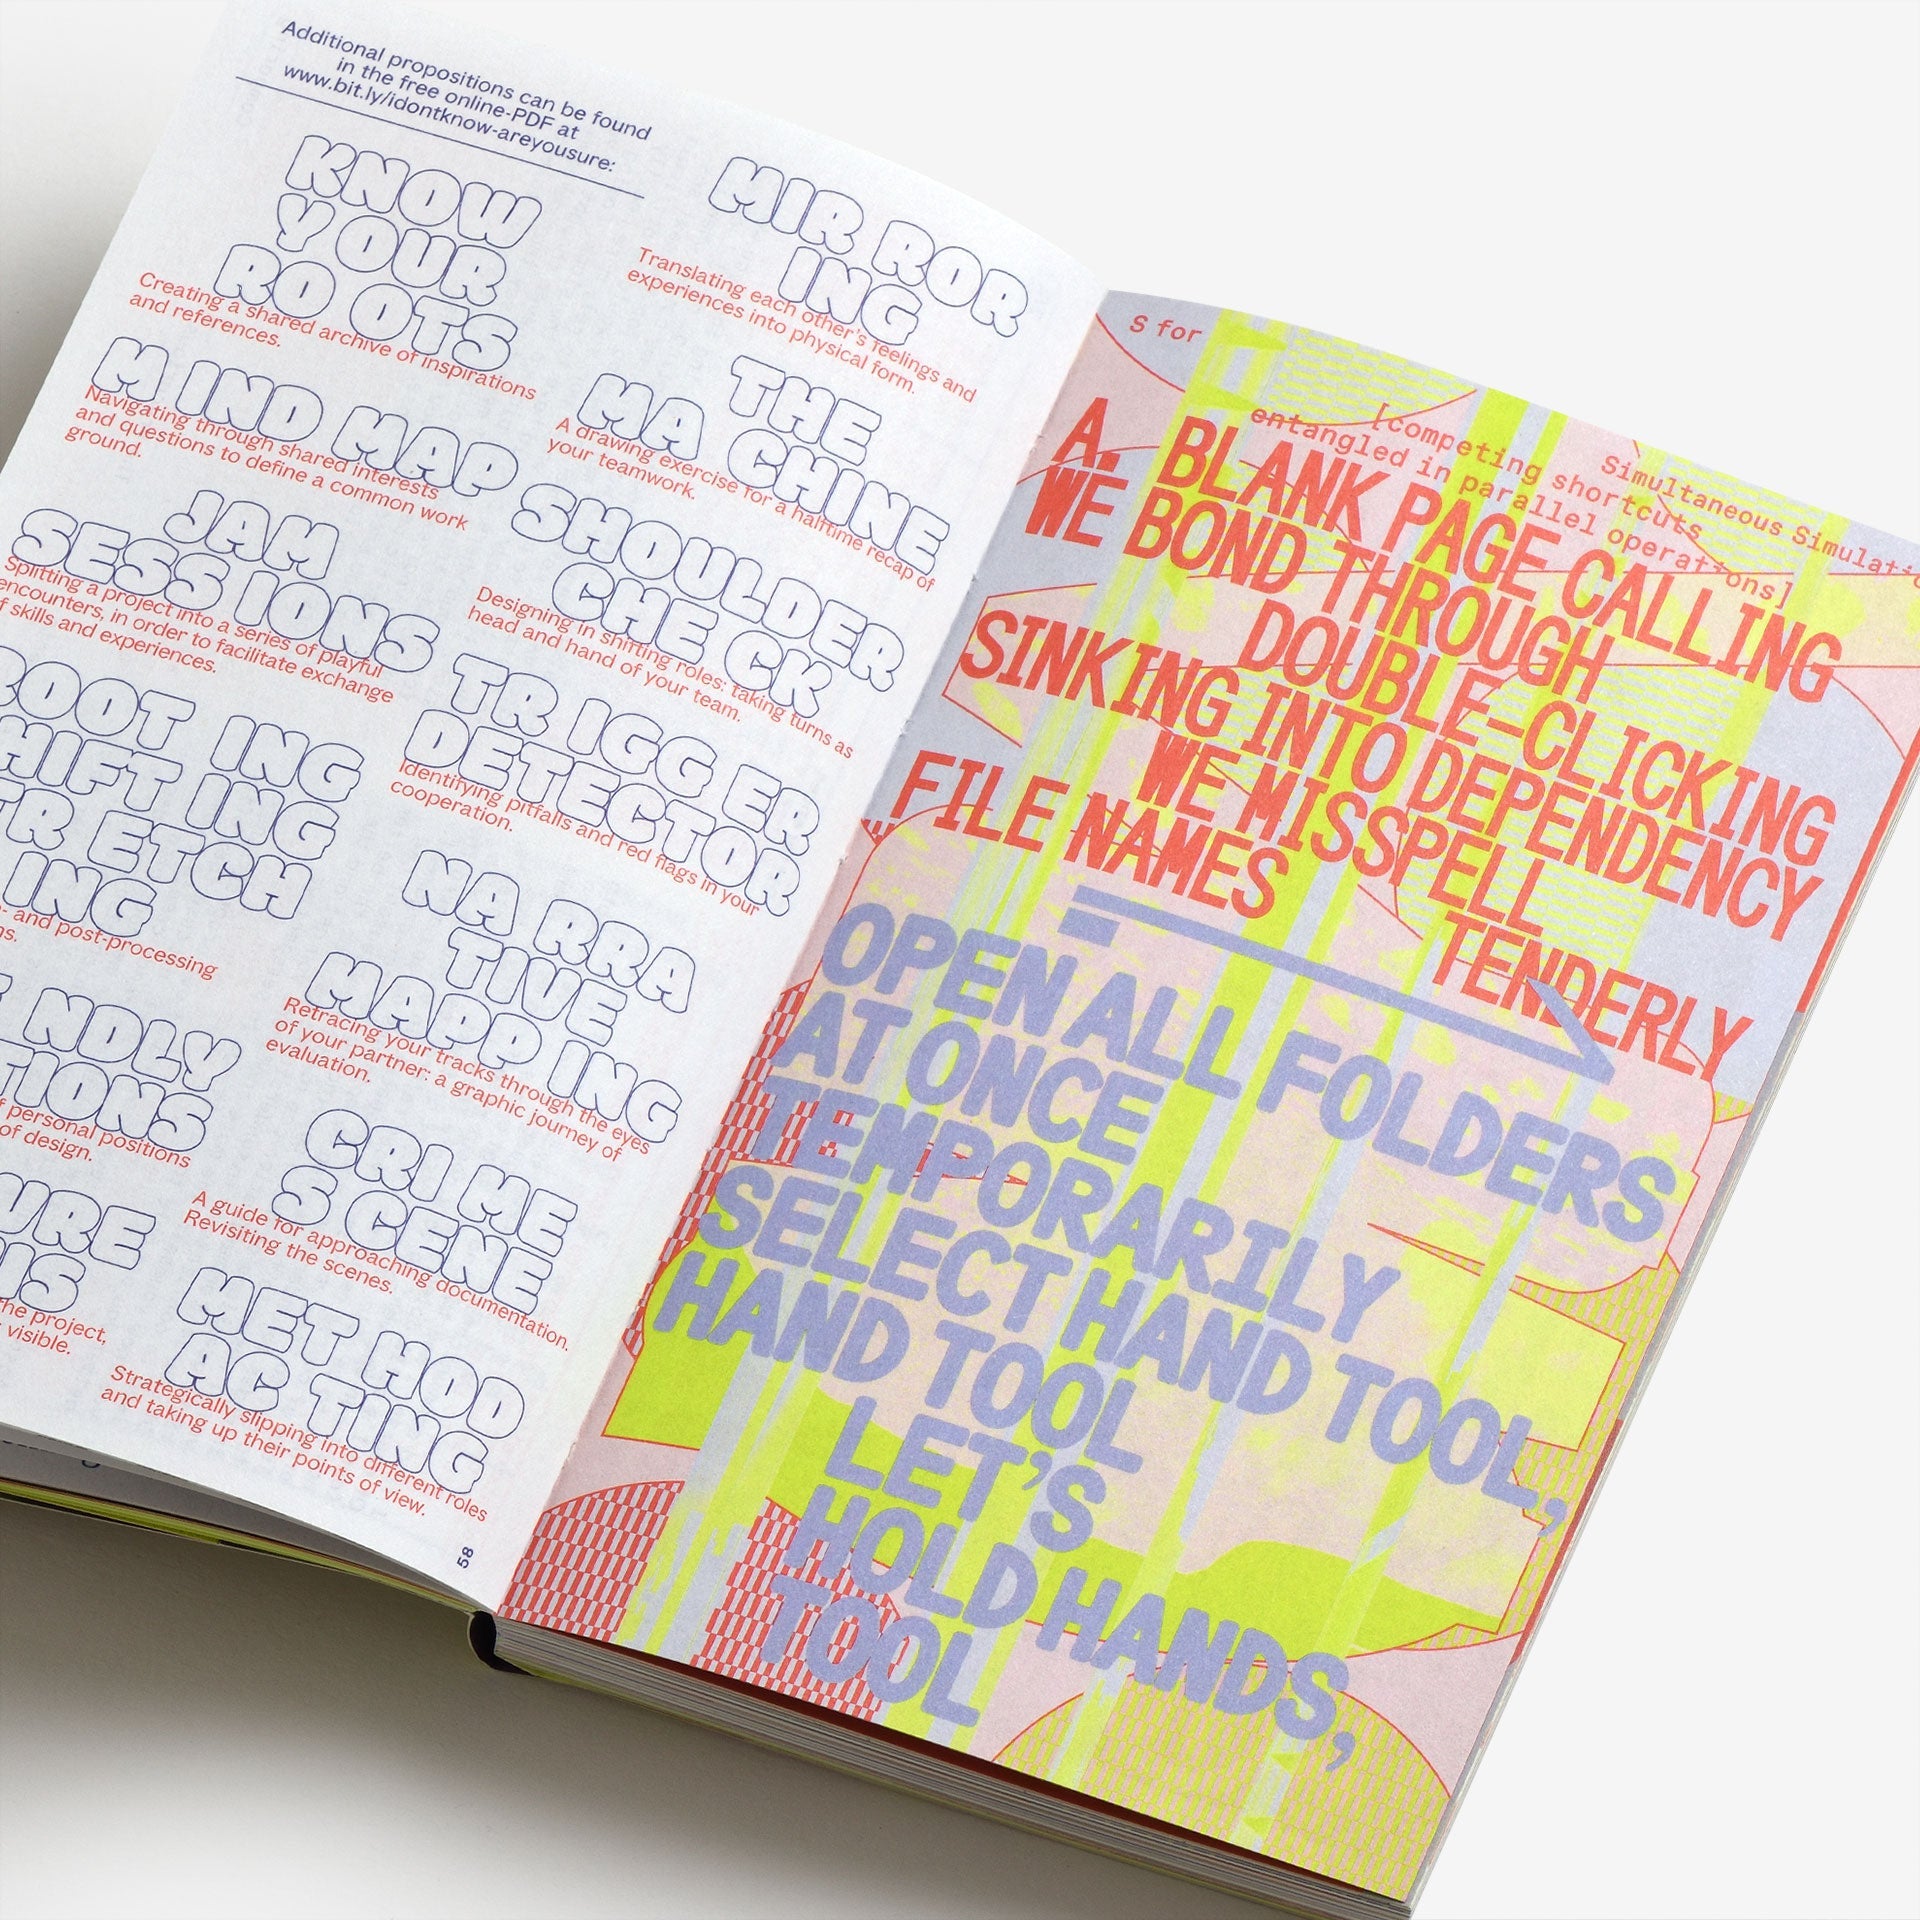 Additional propositions can be found
in the free online-PDF at
www.bit.ly/idontknow-areyousure:
KNOW
YOUR
RO OTS
Creating a shared archive of inspirations
and references.
M IND MAP
Navigating through shared interests
and questions to define a common work
ground.
JAM
SESS IONS
Splitting a project into a series of playful
encounters, in order to facilitate exchange
f skills and experiences.
OOT ING
HIFT ING
TR ETCH
ING
- and post-processing
ns.
NDLY
TIONS
f personal positions
of design.
URE
IS
the project,
visible.
MIR ROR
ING
Translating each other's feelings and
experiences into physical form.
THE
MA CHINE
A drawing exercise for a halftime recap of
your teamwork.
SHOULDER
CHE CK
Designing in shifting roles: taking turns as
head and hand of your team.
TR IGG ER
DETECTOR
Identifying pitfalls and red flags in your
cooperation.
NA RRA
TIVE
MAPP ING
Retracing your tracks through the eyes
of your partner: a graphic journey of
evaluation.
CRI ME
S CENE
A guide for approaching documentation.
Revisiting the scenes.
MET HOD
AC TING
Strategically slipping into different roles
and taking up their points of view.
58
S for
Simultaneous Simulatio
[competing shortcuts
entangled in parallel operations]
A. BLANK PAGE CALLING
WE BOND THROUGH
DOUBLE-CLICKING
SINKING INTO DEPENDENCY
WE MISSPELL
FILE NAMES
TENDERLY
OPEN ALL FOLDERS
AT ONCE
TEMPORARILY
SELECT HAND TOOL,
HAND TOOL
LET'S
HOLD HANDS,
TOOL